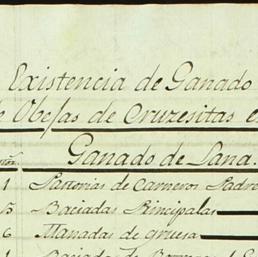 Existencia de Ganado
Obejas de Cruzesitas
Ganado de Lana.
1 Pastorias de Carneros Padre
Baciadas Principales
6 Manadas de gruesa